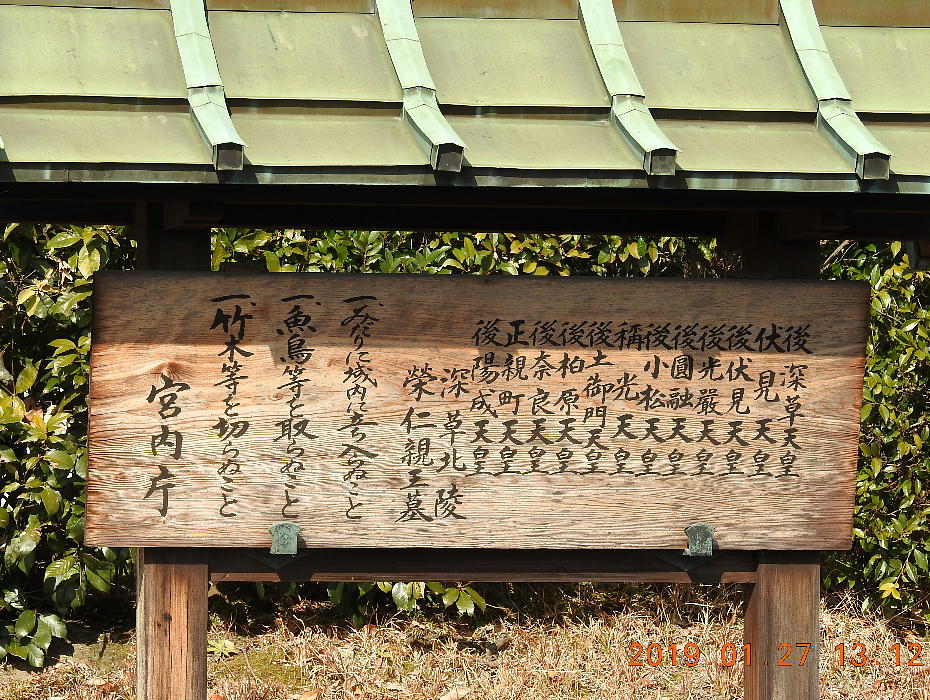 後深草天皇
伏見天皇
後伏見天皇
後光嚴天皇
後圓融天皇
後小松天皇
稱光天皇
後土御門天皇
後柏原天皇
後奈良天皇
正親町天皇
後陽成天皇
深草北陵
榮仁親王墓
一、みだりに域内に立ち入らぬこと
一、魚鳥等を取らぬこと
一、竹木等を切らぬこと
宮内庁
2019 01 27 13 12